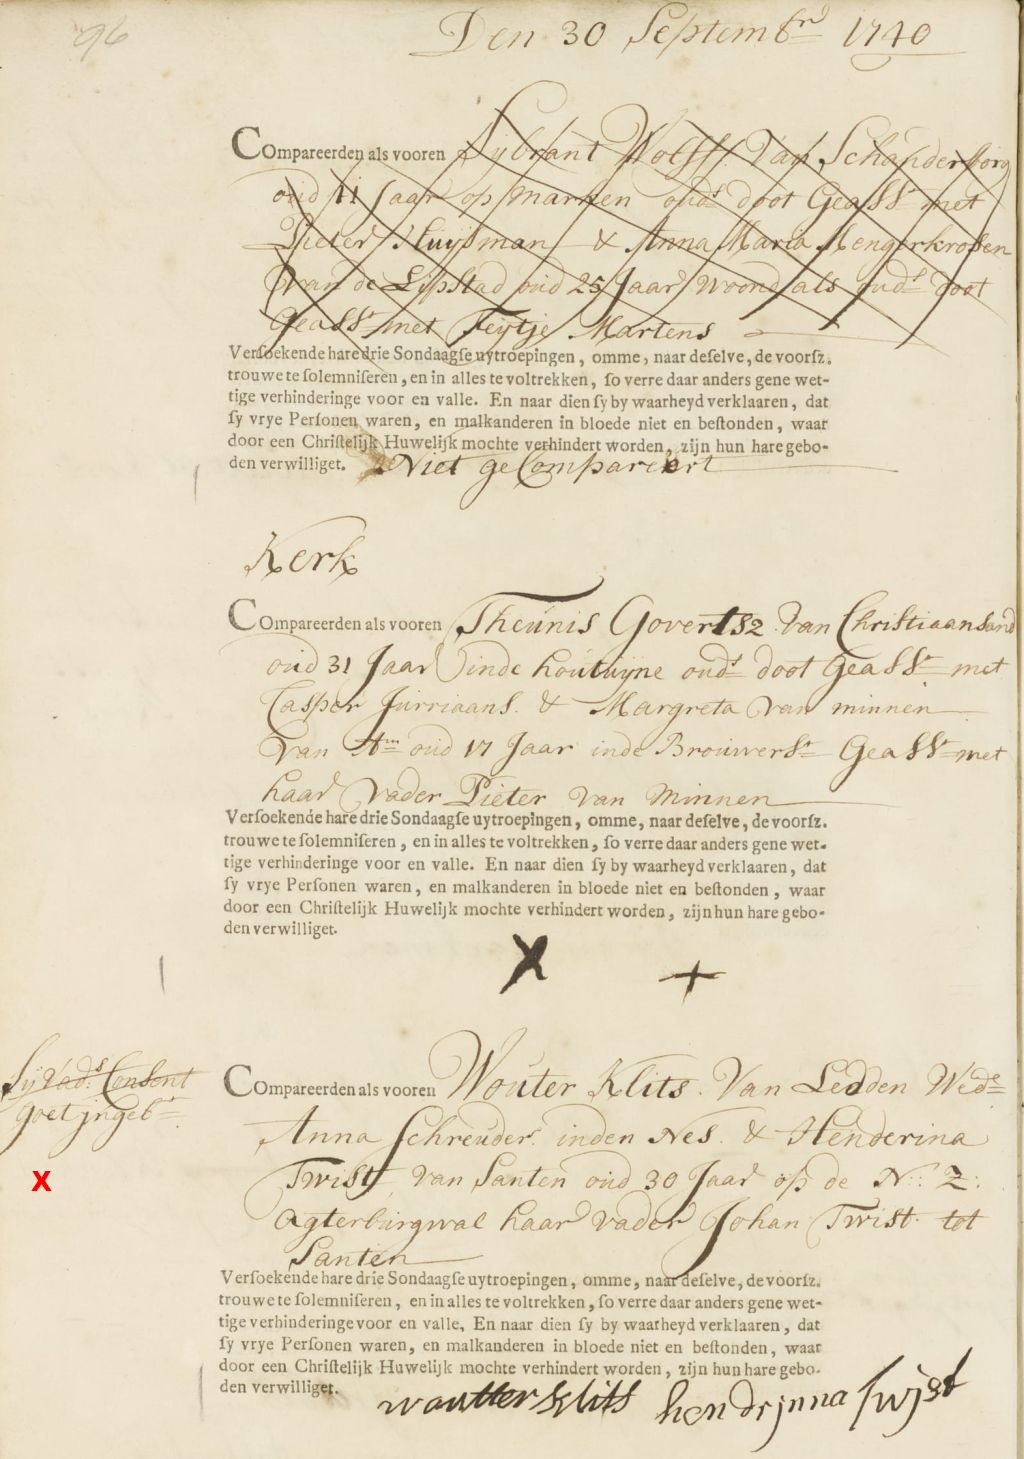 96
Den 30 Septemb:rd 1740
Compareerden als vooren Sybrant Wolff Van Schanderborg
oud 41 Jaar op marken oud:s doot Geasst met
Pieter Huysman & Anna Maria Mengerkrosen
Van de Lipstad oud 25 Jaar Woond als oud:s doot
Geasst met Feytje Martens
Verſoekende hare drie Sondaagſe uytroepingen, omme, naar deſelve, de voorſz.
trouwe te ſolemniſeren, en in alles te voltrekken, ſo verre daar anders gene wet-
tige verhinderinge voor en valle. En naar dien ſy by waarheyd verklaaren, dat
ſy vrye Perſonen waren, en malkanderen in bloede niet en beſtonden, waar
door een Chriſtelijk Huwelijk mochte verhindert worden, zijn hun hare gebo-
den verwilliget. Niet geCompareert
Kerk
Compareerden als vooren Theunis Govertsz Van Christiaansand
oud 31 Jaar inde houtuyne oud:s doot Geasst met
Casper Jurriaans. & Margreta van minnen
Van Am oud 17 Jaar inde Brouwerst Geasst met
haar Vader Pieter van Minnen
Verſoekende hare drie Sondaagſe uytroepingen, omme, naar deſelve, de voorſz.
trouwe te ſolemniſeren, en in alles te voltrekken, ſo verre daar anders gene wet-
tige verhinderinge voor en valle. En naar dien ſy by waarheyd verklaaren, dat
ſy vrye Perſonen waren, en malkanderen in bloede niet en beſtonden, waar
door een Chriſtelijk Huwelijk mochte verhindert worden, zijn hun hare gebo-
den verwilliget.
X +
Sy Vad:s Consent
goet ingebt
X
Compareerden als vooren Wouter Klits. Van Ledden Wede
Anna Schreuder. inden Nes. & Henderina
Twist, van Santen oud 30 Jaar op de N: Z:
Agterburgwal haar vader Johan Twist tot
Santen
Verſoekende hare drie Sondaagſe uytroepingen, omme, naar deſelve, de voorſz.
trouwe te ſolemniſeren, en in alles te voltrekken, ſo verre daar anders gene wet-
tige verhinderinge voor en valle, En naar dien ſy by waarheyd verklaaren, dat
ſy vrye Perſonen waren, en malkanderen in bloede niet en beſtonden, waar
door een Chriſtelijk Huwelijk mochte verhindert worden, zijn hun hare gebo-
den verwilliget. woutter klits hendrjnna twjst